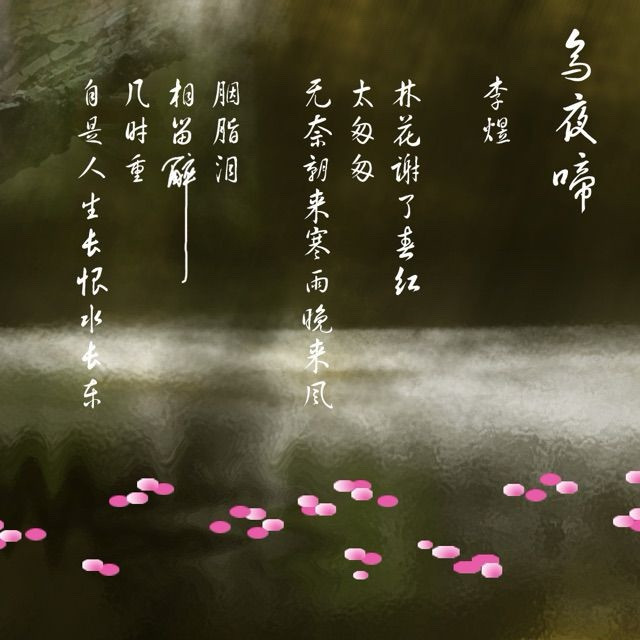 乌夜啼
李煜
林花谢了春红
太匆匆
无奈朝来寒雨晚来风
胭脂泪
相留醉
几时重
自是人生长恨水长东